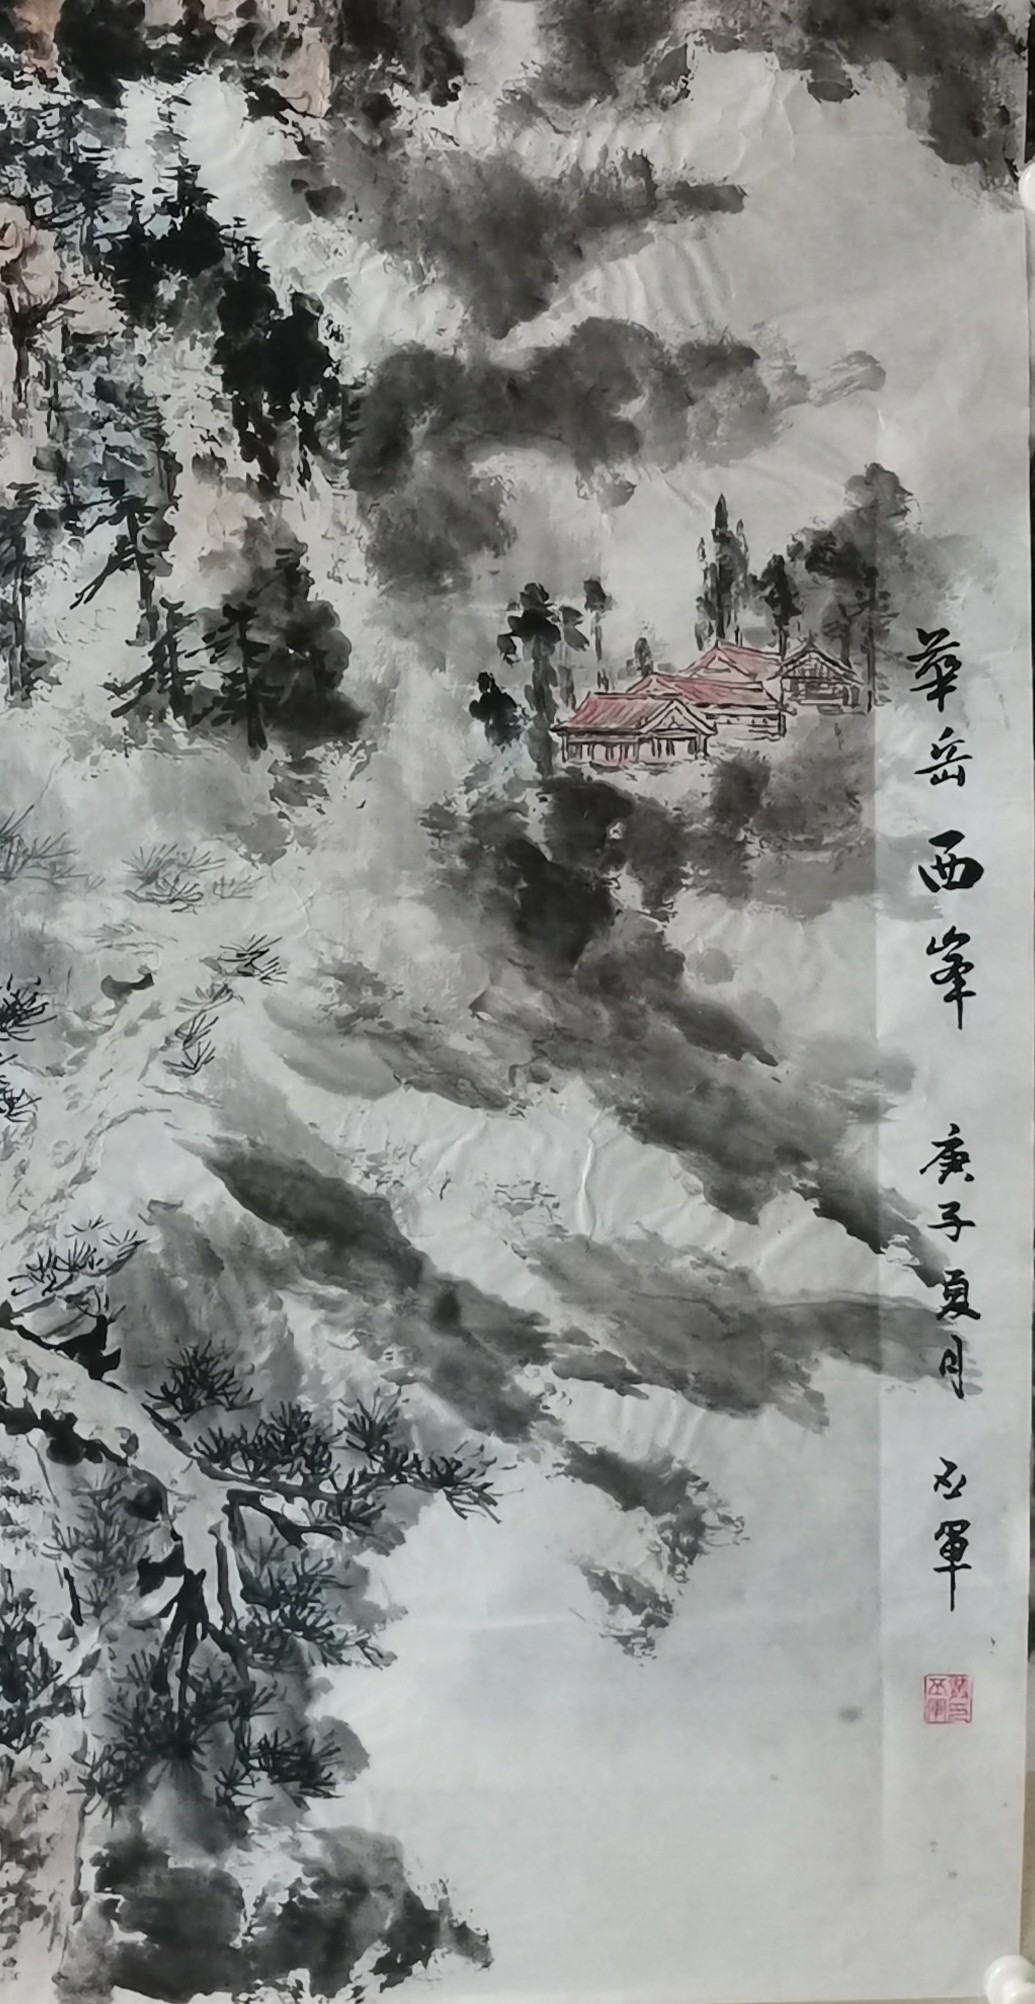 華岳西峯 庚子夏月 軍